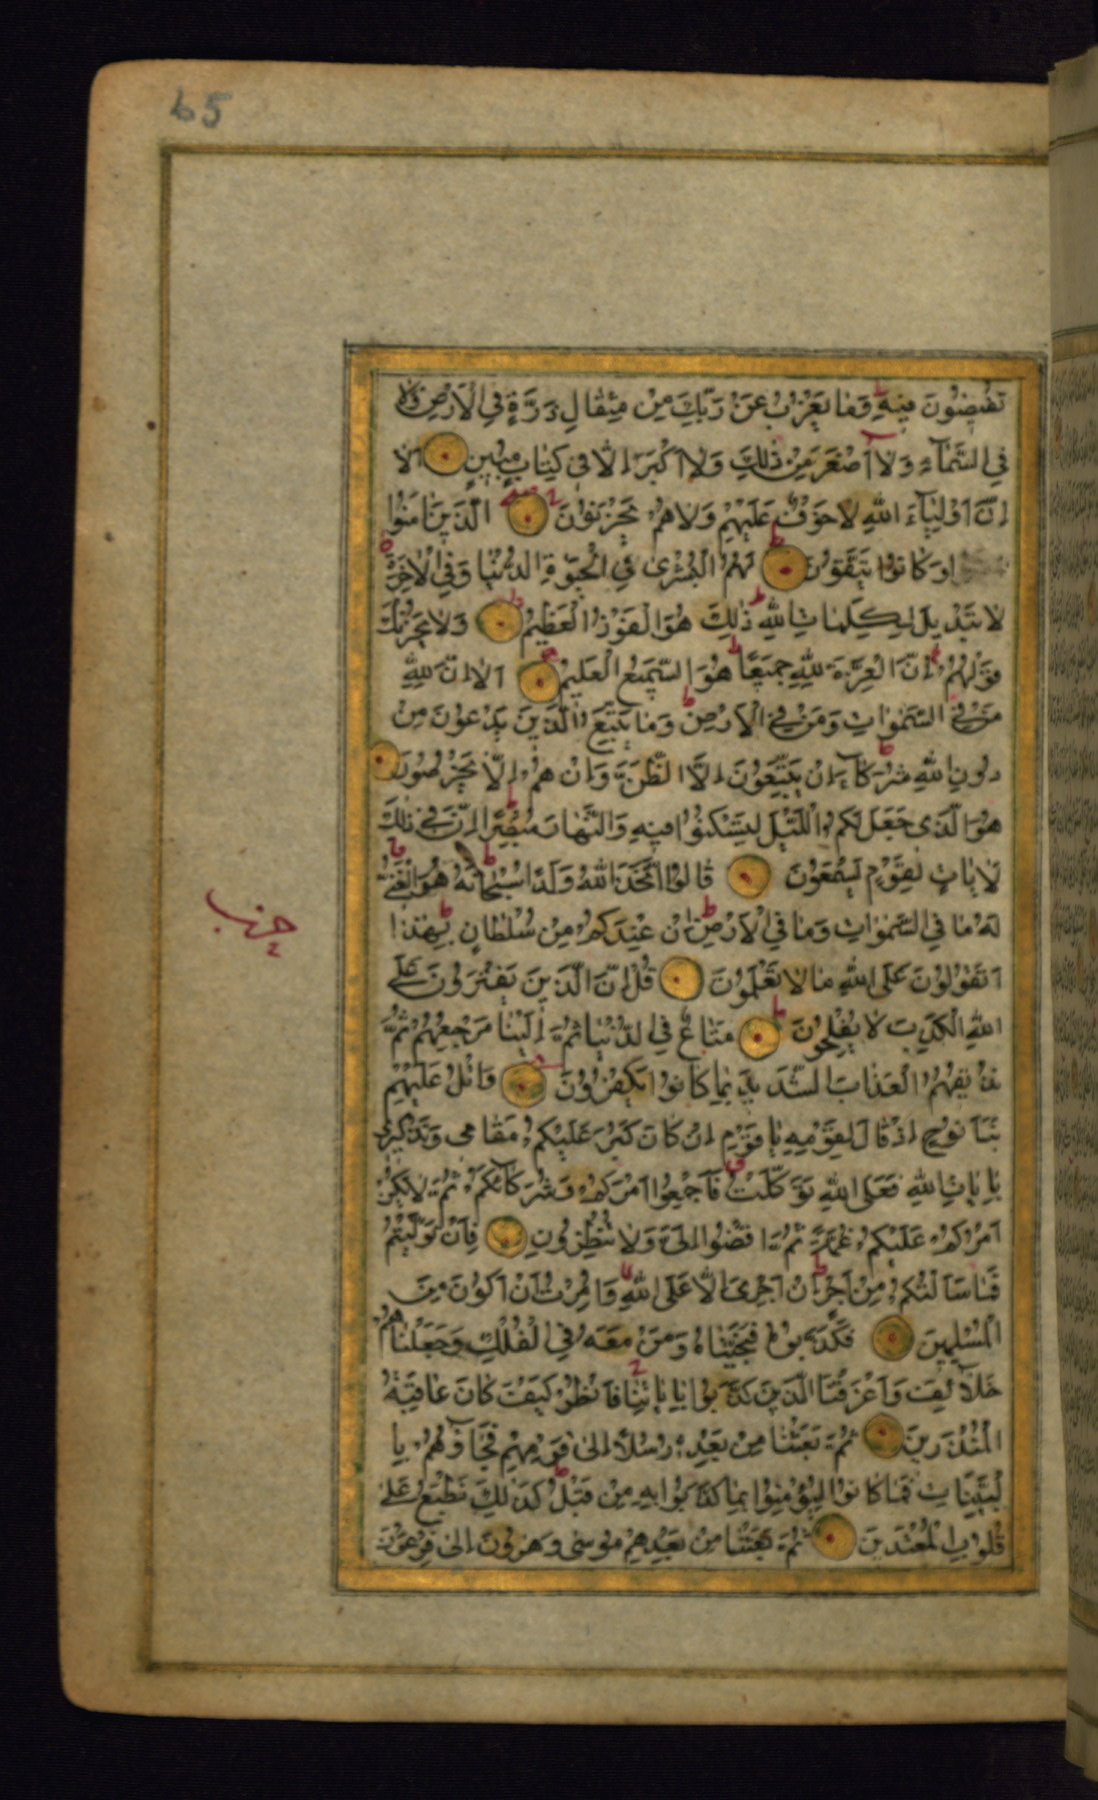 65
تُفِيضُونَ فِيهِ وَمَا يَعْزُبُ عَنْ رَبِّكَ مِنْ مِثْقَالِ ذَرَّةٍ فِي الْاَرْضِ وَلَا
فِي السَّمَاۤءِ وَلَاۤ اَصْغَرَ مِنْ ذٰلِكَ وَلَاۤ اَكْبَرَ اِلَّا فِي كِتَابٍ مُبِينٍ اَلَا
اِنَّ اَوْلِيَاۤءَ اللهِ لَا خَوْفٌ عَلَيْهِمْ وَلَا هُمْ يَحْزَنُونَ الَّذِينَ اٰمَنُوا
وَكَانُوا يَتَّقُونَ لَهُمُ الْبُشْرٰى فِي الْحَيٰوةِ الدُّنْيَا وَفِي الْاٰخِرَةِ
لَا تَبْدِيلَ لِكَلِمَاتِ اللهِ ذٰلِكَ هُوَ الْفَوْزُ الْعَظِيمُ وَلَا يَحْزُنْكَ
قَوْلُهُمْ اِنَّ الْعِزَّةَ لِلّٰهِ جَمِيعًا هُوَ السَّمِيعُ الْعَلِيمُ اَلَا اِنَّ لِلّٰهِ
مَنْ فِي السَّمٰوَاتِ وَمَنْ فِي الْاَرْضِ وَمَا يَتَّبِعُ الَّذِينَ يَدْعُونَ مِنْ
دُونِ اللهِ شُرَكَاۤءَ اِنْ يَتَّبِعُونَ اِلَّا الظَّنَّ وَاِنْ هُمْ اِلَّا يَخْرُصُونَ
هُوَ الَّذِى جَعَلَ لَكُمُ اللَّيْلَ لِتَسْكُنُوا فِيهِ وَالنَّهَارَ مُبْصِرًا اِنَّ فِي ذٰلِكَ
لَاٰيَاتٍ لِقَوْمٍ يَسْمَعُونَ قَالُوا اتَّخَذَ اللهُ وَلَدًا سُبْحَانَهُ هُوَ الْغَنِيُّ
لَهُ مَا فِي السَّمٰوَاتِ وَمَا فِي الْاَرْضِ اِنْ عِنْدَكُمْ مِنْ سُلْطَانٍ بِهٰذَا
اَتَقُولُونَ عَلَى اللهِ مَا لَا تَعْلَمُونَ قُلْ اِنَّ الَّذِينَ يَفْتَرُونَ عَلَى
حزب
اللهِ الْكَذِبَ لَا يُفْلِحُونَ مَتَاعٌ فِي الدُّنْيَا ثُمَّ اِلَيْنَا مَرْجِعُهُمْ ثُمَّ
نُذِيقُهُمُ الْعَذَابَ الشَّدِيدَ بِمَا كَانُوا يَكْفُرُونَ وَاتْلُ عَلَيْهِمْ
نَبَاَ نُوحٍ اِذْ قَالَ لِقَوْمِهِ يَا قَوْمِ اِنْ كَانَ كَبُرَ عَلَيْكُمْ مَقَامِى وَتَذْكِيرِى
بِاٰيَاتِ اللهِ فَعَلَى اللهِ تَوَكَّلْتُ فَاَجْمِعُوا اَمْرَكُمْ وَشُرَكَاۤءَكُمْ ثُمَّ لَا يَكُنْ
اَمْرُكُمْ عَلَيْكُمْ غُمَّةً ثُمَّ اقْضُوا اِلَيَّ وَلَا تُنْظِرُونِ فَاِنْ تَوَلَّيْتُمْ
فَمَا سَاَلْتُكُمْ مِنْ اَجْرٍ اِنْ اَجْرِىَ اِلَّا عَلَى اللهِ وَاُمِرْتُ اَنْ اَكُونَ مِنَ
الْمُسْلِمِينَ فَكَذَّبُوهُ فَنَجَّيْنَاهُ وَمَنْ مَعَهُ فِي الْفُلْكِ وَجَعَلْنَاهُمْ
خَلَاۤئِفَ وَاَغْرَقْنَا الَّذِينَ كَذَّبُوا بِاٰيَاتِنَا فَانْظُرْ كَيْفَ كَانَ عَاقِبَةُ
الْمُنْذَرِينَ ثُمَّ بَعَثْنَا مِنْ بَعْدِهِ رُسُلًا اِلٰى قَوْمِهِمْ فَجَاۤؤُهُمْ بِا
لْبَيِّنَاتِ فَمَا كَانُوا لِيُؤْمِنُوا بِمَا كَذَّبُوا بِهِ مِنْ قَبْلُ كَذٰلِكَ نَطْبَعُ عَلٰى
قُلُوبِ الْمُعْتَدِينَ ثُمَّ بَعَثْنَا مِنْ بَعْدِهِمْ مُوسٰى وَهٰرُونَ اِلٰى فِرْعَوْنَ